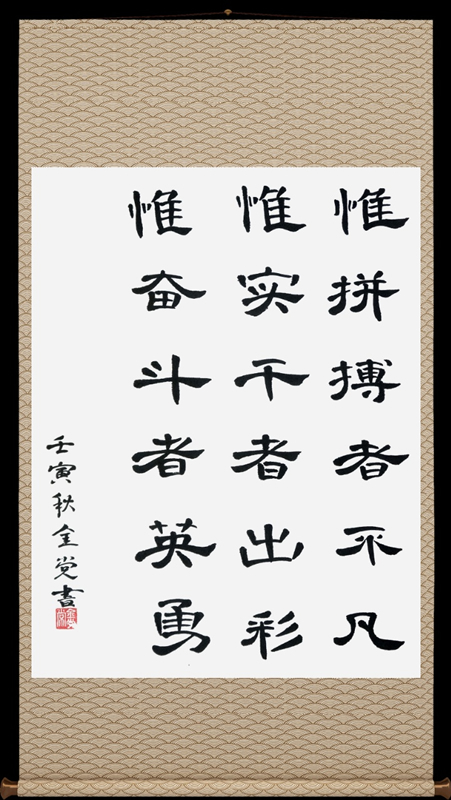 惟拼搏者不凡
惟实干者出彩
惟奋斗者英勇
壬寅秋金党書